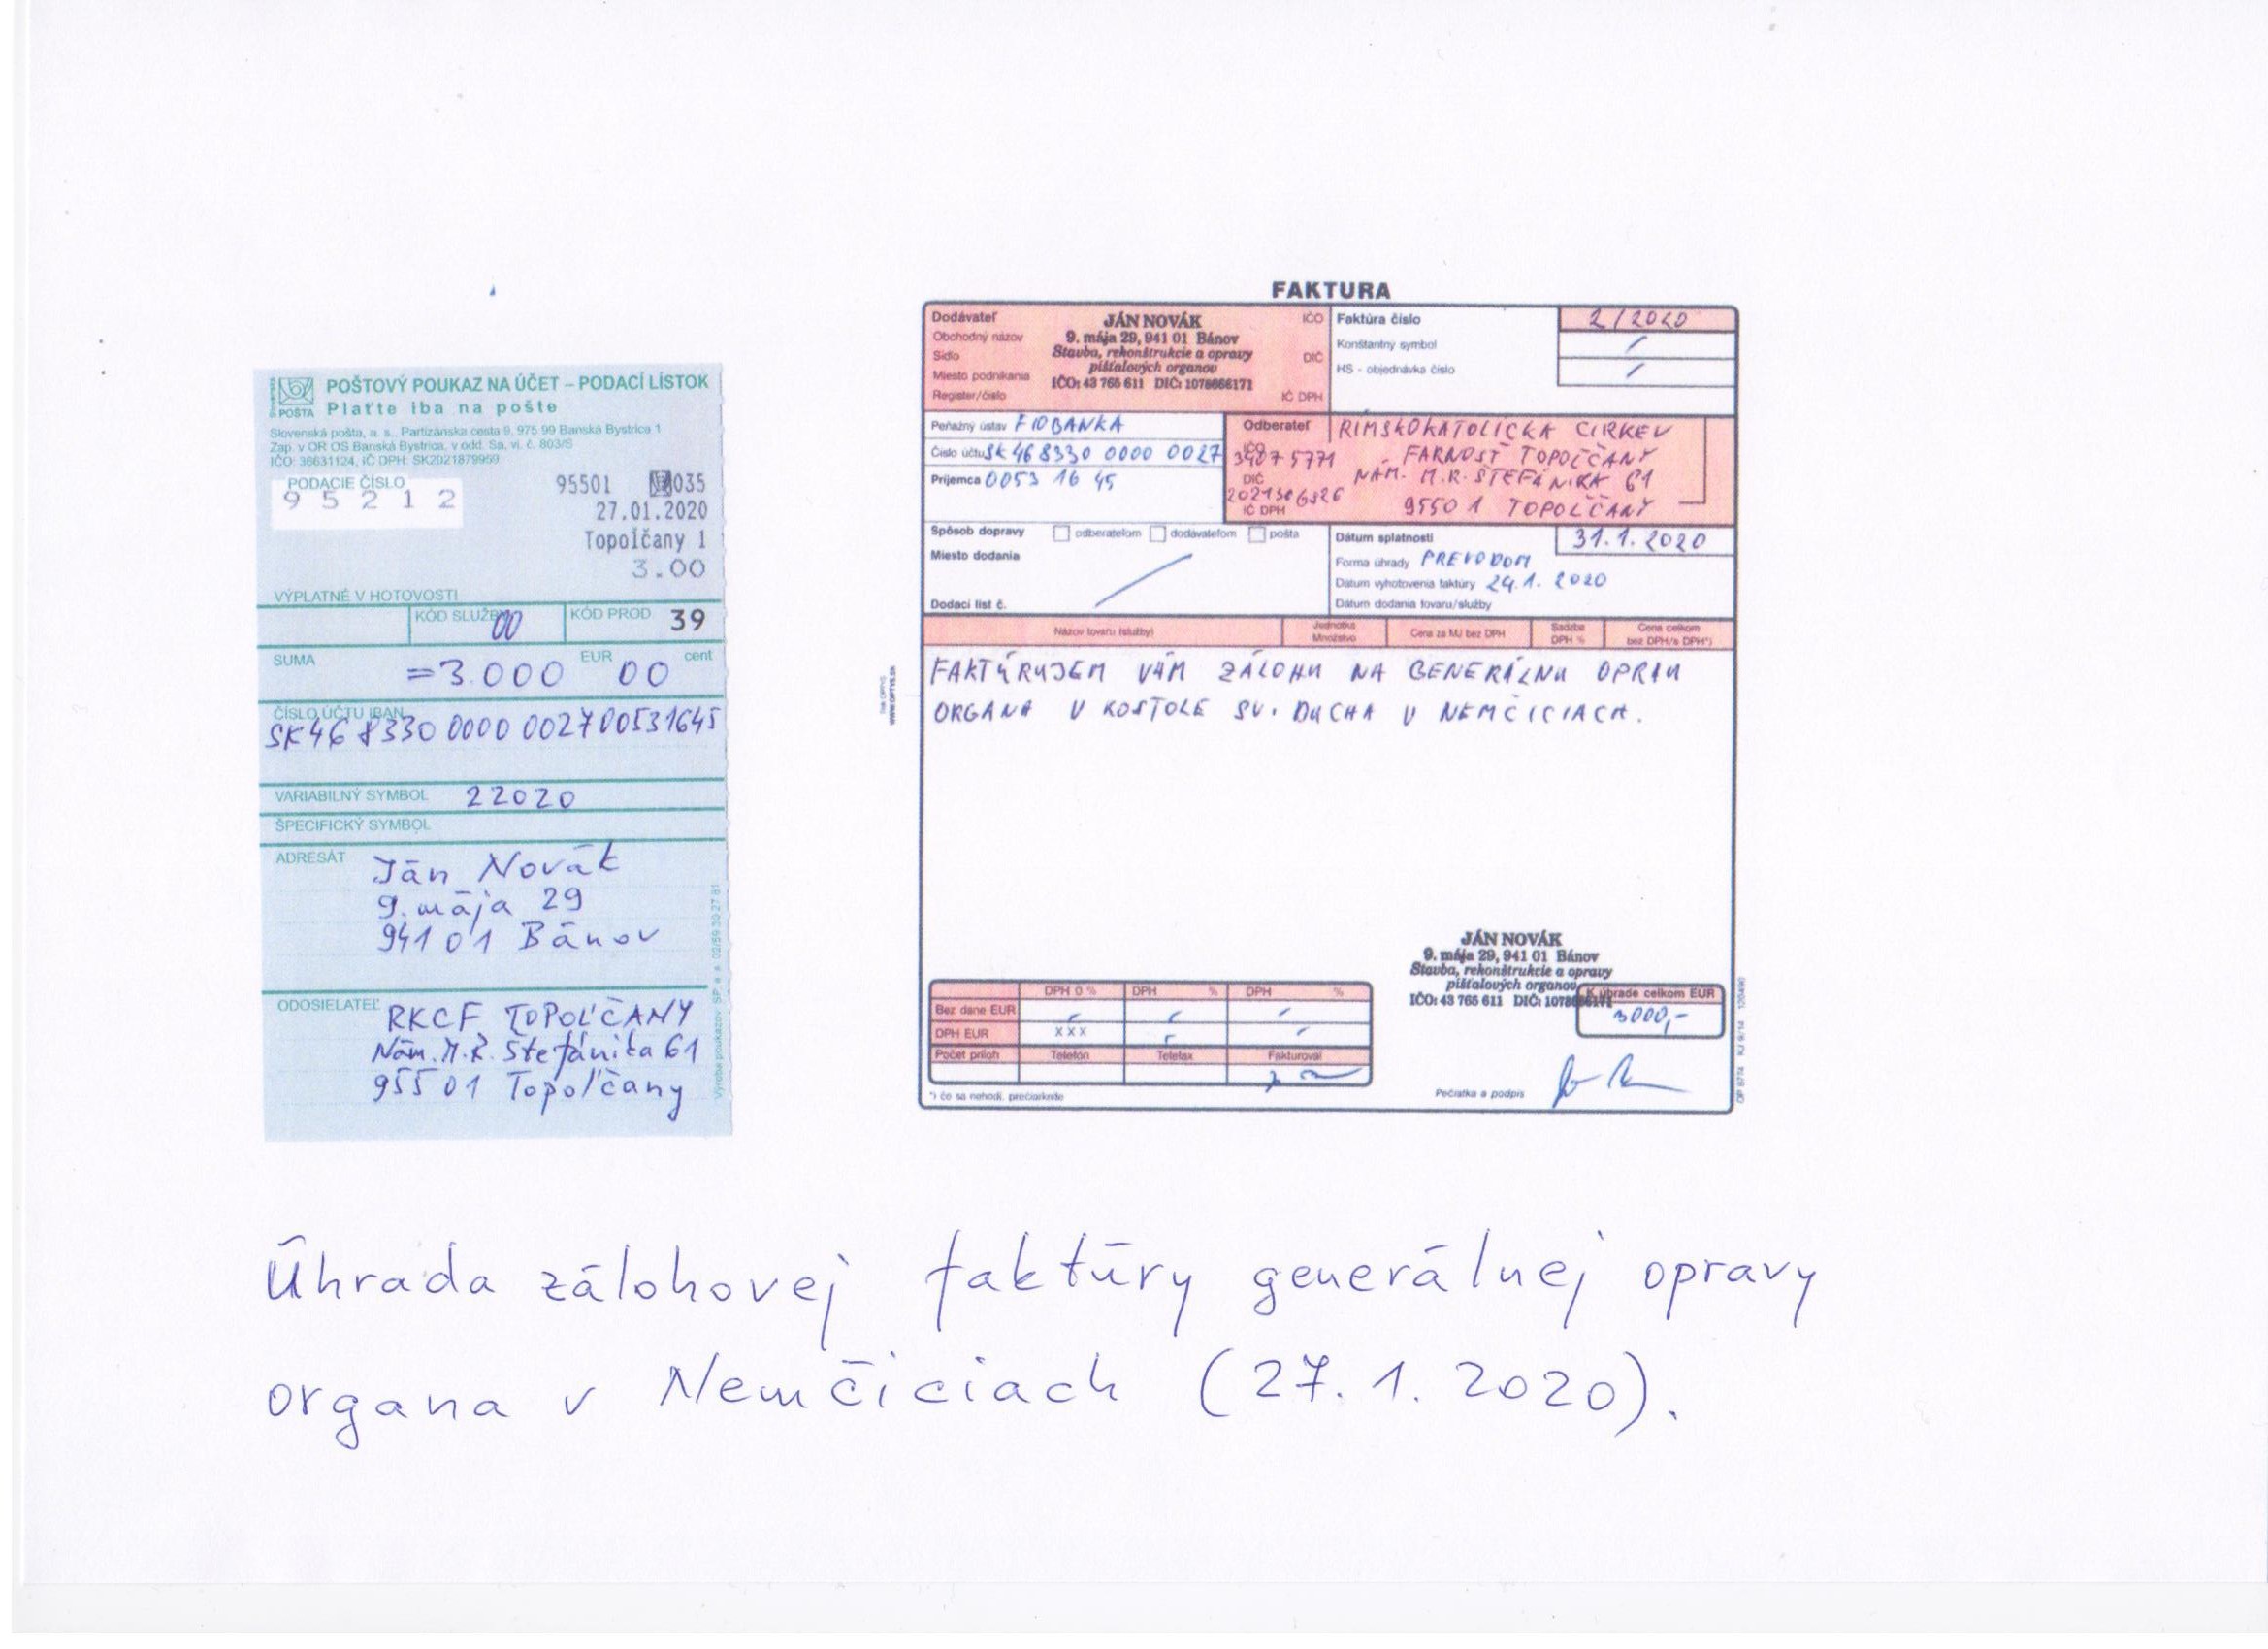 POŠTOVÝ POUKAZ NA ÚČET – PODACÍ LÍSTOK
POŠTA Plaťte iba na pošte
Slovenská pošta, a. s., Partizánska cesta 9, 975 99 Banská Bystrica 1
Zap. v OR OS Banská Bystrica, v odd. Sa, vl. č. 803/S
IČO: 36631124, IČ DPH: SK2021879959
PODACIE ČÍSLO
9 5 2 1 2
95501 035
27.01.2020
Topoľčany 1
3.00
VÝPLATNÉ V HOTOVOSTI
KÓD SLUŽBY 00 KÓD PROD 39
SUMA EUR cent
=3.000 00
ČÍSLO ÚČTU IBAN
SK46 8330 0000 002700531645
VARIABILNÝ SYMBOL 22020
ŠPECIFICKÝ SYMBOL
ADRESÁT Ján Novák
9. mája 29
941 01 Bánov
ODOSIELATEĽ RKCF TOPOĽČANY
Nám. M.R. Štefánika 61
955 01 Topoľčany
FAKTURA
Dodávateľ
Obchodný názov
Sídlo
Miesto podnikania
Register/číslo
JÁN NOVÁK
9. mája 29, 941 01 Bánov
Stavba, rekonštrukcie a opravy
píšťalových organov
IČO: 43 765 611 DIČ: 1078666171
IČO
DIČ
IČ DPH
Faktúra číslo 2/2020
Konštantný symbol
HS - objednávka číslo
Peňažný ústav FIOBANKA
Číslo účtu SK 46 8330 0000 0027
Príjemca 0053 16 45
Odberateľ RIMSKOKATOLÍCKA CIRKEV
IČO FARNOSŤ TOPOĽČANY
DIČ NÁM. M.R. ŠTEFÁNIKA 61
IČ DPH 95501 TOPOĽČANY
Spôsob dopravy odberateľom dodávateľom pošta
Miesto dodania
Dodací list č.
Dátum splatnosti 31.1.2020
Forma úhrady PREVODOM
Dátum vyhotovenia faktúry 24.1.2020
Dátum dodania tovaru/služby
Názov tovaru (služby) Jednotka Množstvo Cena za MJ bez DPH Sadzba DPH % Cena celkom bez DPH/s DPH*)
FAKTÚRUJEM VÁM ZÁLOHU NA GENERÁLNU OPRAVU
ORGANA V KOSTOLE SV. DUCHA V NEMČICIACH.
WWW.OPTYS.SK
JÁN NOVÁK
9. mája 29, 941 01 Bánov
Stavba, rekonštrukcie a opravy
píšťalových organov
IČO: 43 765 611
K úhrade celkom EUR
3000,-
DPH 0 % DPH % DPH %
Bez dane EUR
DPH EUR XXX
Počet príloh Telefón Telefax Fakturoval
*) čo sa nehodí, prečiarknite
Pečiatka a podpis
Úhrada zálohovej faktúry generálnej opravy
organa v Nemčiciach (27. 1. 2020).